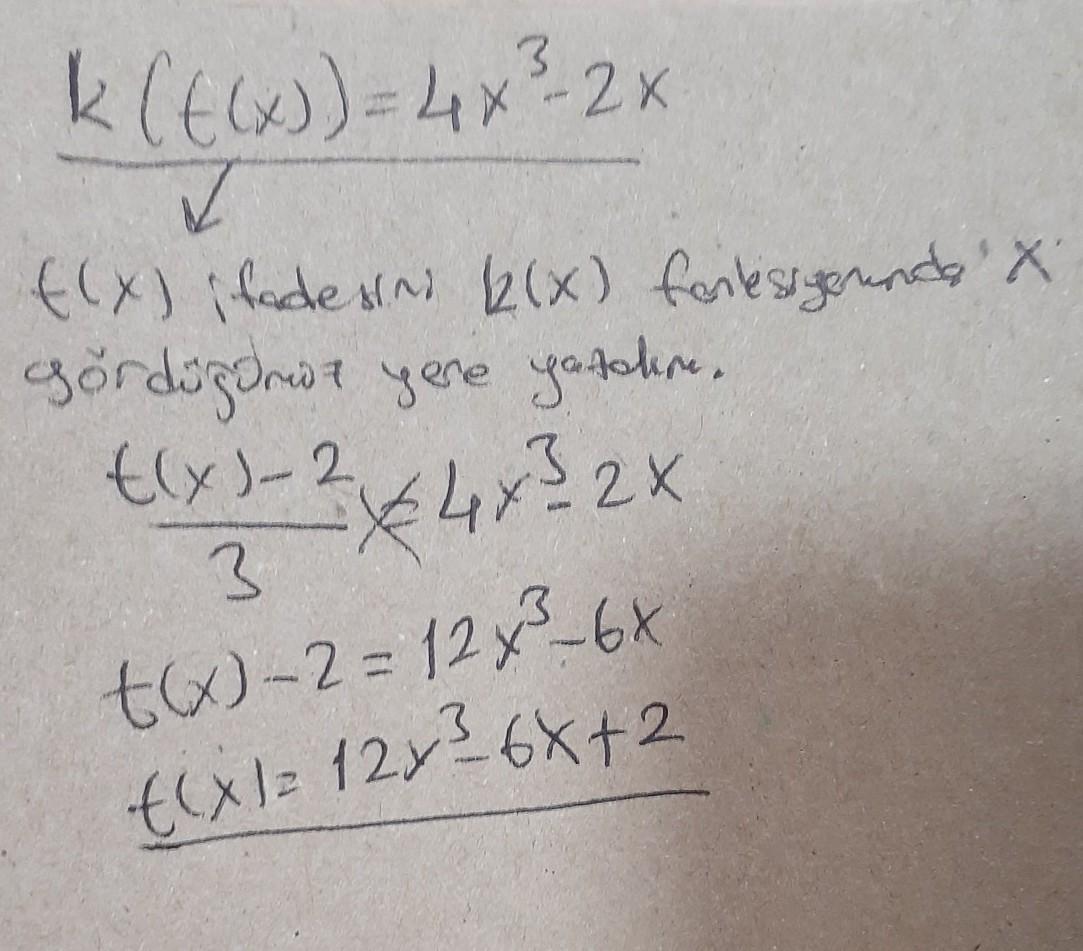 k(t(x))=4x³-2x
t(x) ifadesini k(x) fonksiyonunda 'x'
gördüğümüz yere yazalım.
t(x)-2 / 3 = 4x³-2x
t(x)-2=12x³-6x
t(x)=12x³-6x+2